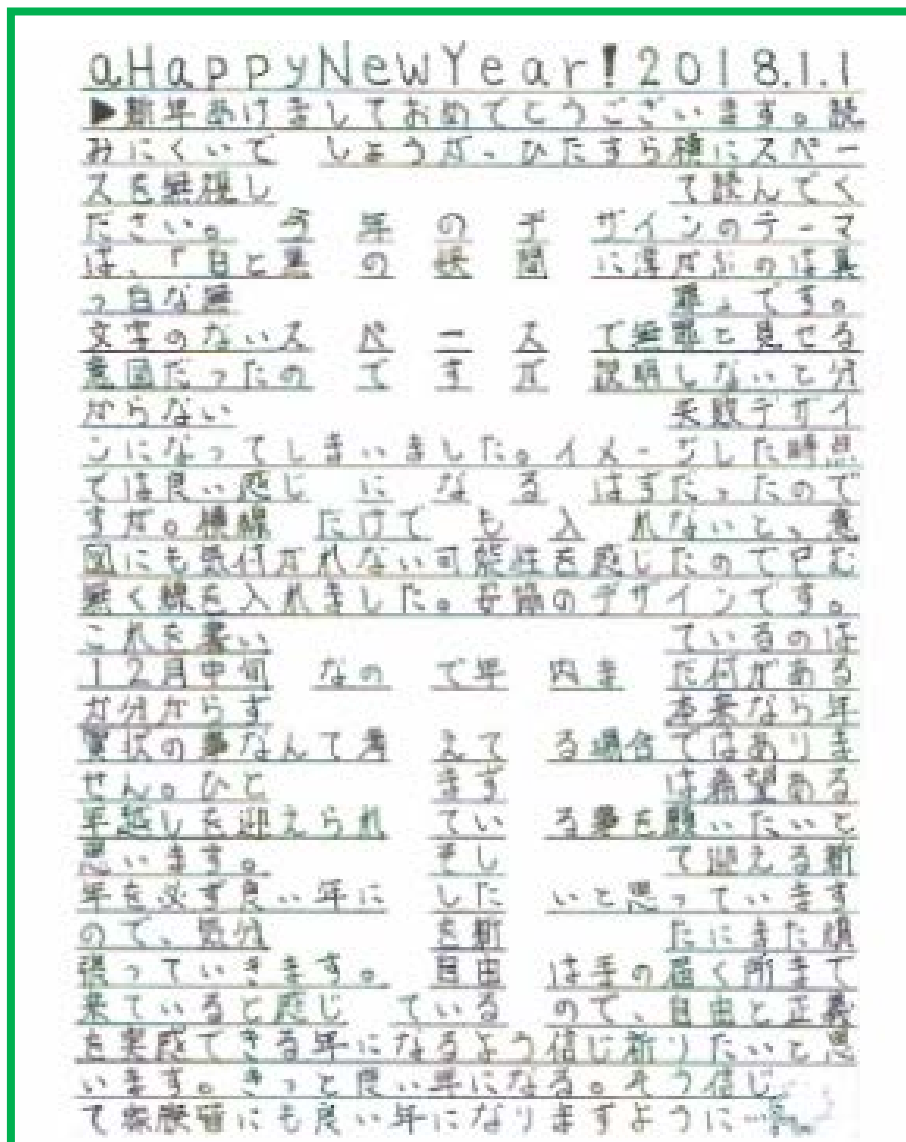 aHappyNewYear!2018.1.1
▶新年あけましておめでとうございます。読
みにくいで しょうが、ひたすら横にスペー
スを無視し て読んでく
ださい。 今 年 の デ ザインのテーマ
は、「白と黒 の 狭 間 に浮かぶのは真
っ白な無 罪」です。
文字のないス ペ ー ス で無罪と見せる
意図だったの で す が 説明しないと分
からない 失敗デザイ
ンになってしまいました。イメージした時点
では良い感じ に な る はずだったので
すが。横線 だけで も 入 れないと、意
図にも気付かれない可能性を感じたので已む
無く線を入れました。妥協のデザインです。
これを書い ているのは
12月中旬 なの で年 内ま だ何がある
か分からず 本来なら年
賀状の事なんて考 えて る場合ではありま
せん。ひと まず は希望ある
年越しを迎えられ てい る事を願いたいと
思います。 そし て迎える新
年を必ず良い年に した いと思っています
ので、気分 を新 たにまた頑
張っていきます。 自由 は手の届く所まで
来ていると感じ ている ので、自由と正義
を実感できる年になるよう信じ祈りたいと思
います。きっと良い年になる。そう信じ
て家族皆にも良い年になりますように…